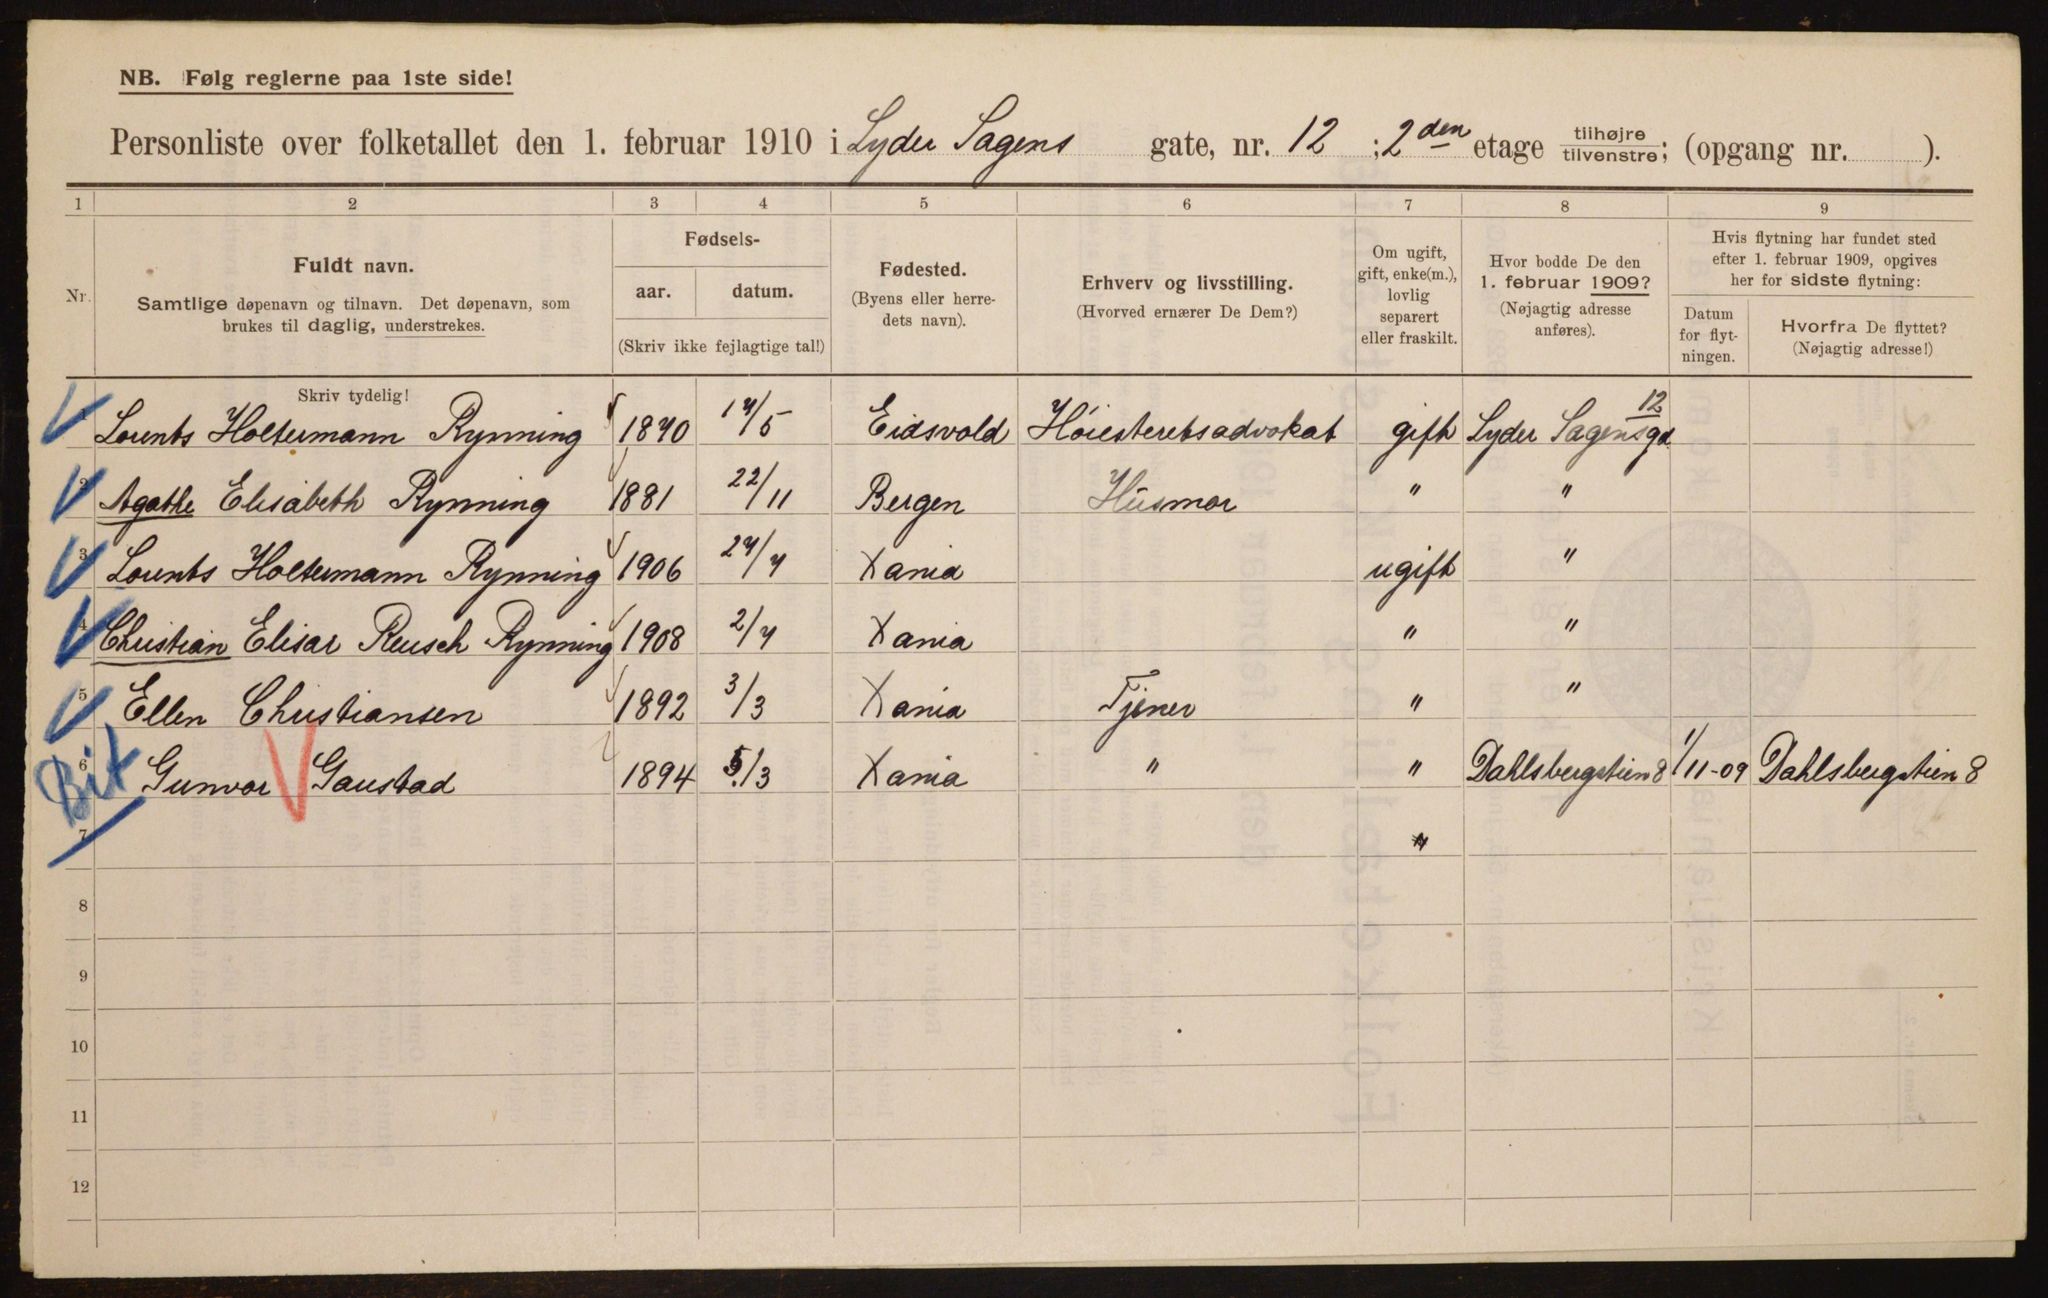 NB. Følg reglerne paa 1ste side!
Personliste over folketallet den 1. februar 1910 i Lyder Sagens gate, nr. 12 ; 2den etage tilhøjre tilvenstre; (opgang nr. ).
1 2 3 4 5 6 7 8 9
Nr.
Fuldt navn.
Samtlige døpenavn og tilnavn. Det døpenavn, som
brukes til daglig, understrekes.
Fødsels-
aar. datum.
(Skriv ikke fejlagtige tal!)
Fødested.
(Byens eller herre-
dets navn).
Erhverv og livsstilling.
(Hvorved ernærer De Dem?)
Om ugift,
gift, enke(m.),
lovlig
separert
eller fraskilt.
Hvor bodde De den
1. februar 1909?
(Nøjagtig adresse
anføres).
Hvis flytning har fundet sted
efter 1. februar 1909, opgives
her for sidste flytning:
Datum
for flyt-
ningen.
Hvorfra De flyttet?
(Nøjagtig adresse!)
Skriv tydelig!
1 Lorents Holtermann Rynning 1870 17/5 Eidsvold Høiesteretsadvokat gift Lyder Sagensgd. 12
2 Agathe Elisabeth Rynning 1881 22/11 Bergen Husmor " "
3 Lorents Holtermann Rynning 1906 27/7 Xania ugift "
4 Christian Elisar Reusch Rynning 1908 2/7 Xania " "
5 Ellen Christiansen 1892 3/3 Xania Tjener " "
Bit
6 Gunvor Gaustad 1894 5/3 Xania " " Dahlsbergstien 8 1/11-09 Dahlsbergstien 8
7 "
8
9
10
11
12